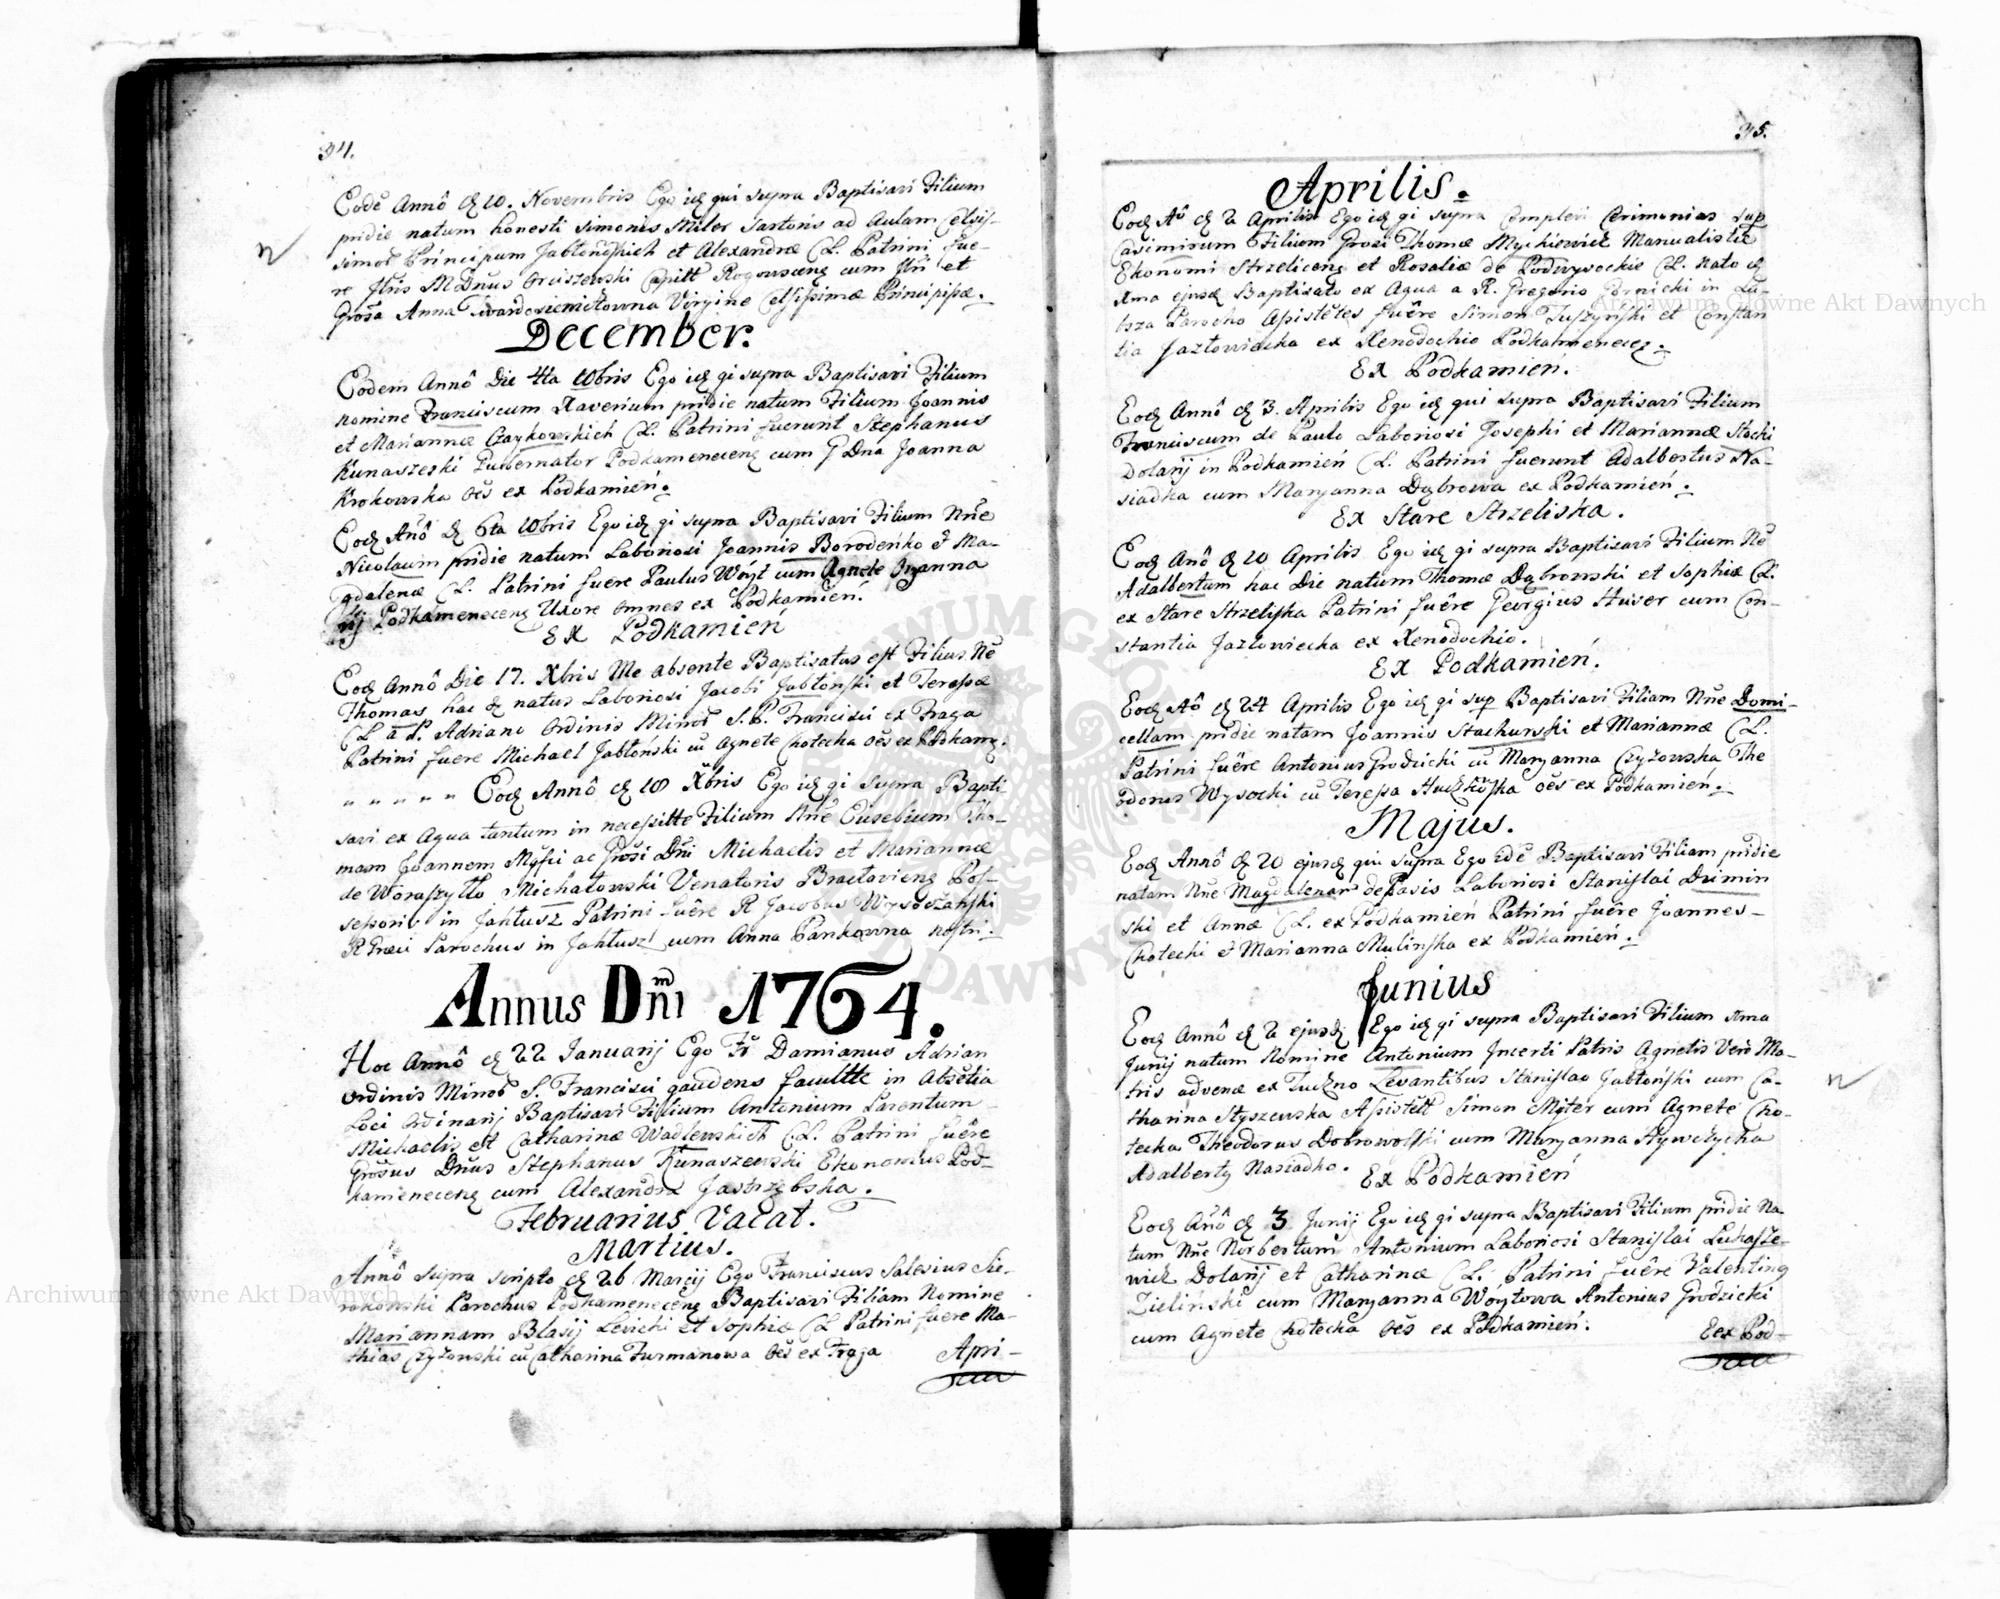 34.
Eodē Annô d 10. Novembris Ego idq qui supra Baptisavi Filium
pridie natum honesti Simonis Miler Sartoris ad Aulam Celsis-
simoꝝ Principum Jabłonoſkich et Alexandræ C.L. Patrini fue-
re Jllris MDnus Capitt cum Jllri et
Grosa Anna Virgine Celsiſsimæ Principiſsæ.
December.
Eodem Annô Die 4ta 10bris Ego idq qi supra Baptisavi Filium
nomine Franciscum Xaverium pridie natum Filium Joannis
et Mariannæ Czaykowskich C.L. Patrini fuerunt Stephanus
Kunaszeski Gubernator Podkameneceng cum G Dna Joanna
Krokowska oēs ex Podkamień.
Eodq Añô d 6ta 10bris Ego idq qi supra Baptisavi Filium Nñe
Nicolaum pridie natum Laboriosi Joannis Borodeńko & Ma-
gdalenæ C.L. Patrini fuere Paulus Wóyt cum Agnete Organna
rij Podkameneceng Uxore omnes ex Podkamień.
Ex Podkamień
Eodq Annô Die 17. Xbris Me absente Baptisatus eſt Filius Nē
Thomas hac d natus Laboriosi Jacobi Jabłonſki et Tereſsæ
C L a P. Adriano Ordinis Minoꝝ S. P. Francisci ex Fraga
Patrini fuere Michael Jabłonski cū Agnete Chotecka oēs ex Podkamq.
" " " " " Eodq Annô d 18 Xbris Ego idq qi supra Bapti-
savi ex Aqua tantum in neceſsitte Filium Nñe Eusebium Tho-
mam Joannem Mgfici ac Grosi Dñi Michaelis et Mariannæ
de Woraſzyłło Michałowski Venatoris Bracłavieng Poſ-
sessoris in Jahłusz Patrini fuêre R Jacobus Wysoczańſki
R Græci Parochus in Jahłusz cum Anna Pankowna noſtri.
Annus Dñi 1764.
Hoc Annô d 22 Januarij Ego Fr Damianus Adrian
Ordinis Minoꝝ S. Francisci gaudens facultte in Absētia
Loci Ordinarij Baptisavi Filium Antonium Parentum
Michaelis et Catharinæ Wadlewskich C.L. Patrini fuêre
Grosus Dñus Stephanus Kunaszewski Ekonomus Pod-
kameneceng cum Alexandra Jastrzębska.
Februarius Vacat.
Martius.
Annô supra scripto d 26 Marcij Ego Franciscus Salesius Sie-
rakowski Parochus Podkameneceng Baptisavi Filiam Nomine
Mariannam Blasij Levicki et Sophiæ C L Patrini fuere Ma-
thias Czyżowski cū Catharina Furmanowa oēs ex Fraga
Apri-
35.
Aprilis.
Eodq Aô d 2 Aprilis Ego idq qi supra Complevi Cerimonias sup
Casimirum Filium Grosi Thomæ Myckiewicz Manualistæ
Ekonomi Strzeliceng et Rosaliæ de Podwysockie C.L. nato d
Xma ejusdq Baptisato ex Aqua a R. Gregorio Gornicki in Lu-
bsza Parocho Aſsistētes fuêre Simon Tuſzyńſki et Conſtan
tia Jazłowiecka ex Xenodochio Podkamenecez.
Ex Podkamień.
Eodq Annô d 3. Aprilis Ego idq qui supra Baptisavi Filium
Franciscum de Paulo Laboriosi Josephi et Mariannæ Stocki
Dolarij in Podkamień C.L. Patrini fuerunt Adalbertus Na-
siadka cum Maryanna Dąbrowa ex Podkamień.
Ex Stare Strzeliska.
Eodq Anô d 10 Aprilis Ego idq qi supra Baptisavi Filium Nē
Adalbertum hac Die natum Thomæ Dąbrowski et Sophiæ C.L.
ex Stare Strzeliſka Patrini fuêre Georgius Huver cum Con-
stantia Jazłowiecka ex Xenodochio.
Ex Podkamień.
Eodq Aô d 24 Aprilis Ego idq qi sup Baptisavi Filiam Nñe Domi-
cellam pridie natam Joannis Stachurski et Mariannæ C.L.
Patrini fuêre Antonius Grodzicki cū Maryanna Czyżowska The
odorus Wysocki cū Tereſsa oēs ex Podkamień.
Majus.
Eodq Annô d 20 ejusdq qui supra Ego idē Baptisavi Filiam pridie
natam Nñe Magdalenam dePazis Laboriosi Staniſlai Dzimin
ski et Annæ C.L. ex Podkamień Patrini fuêre Joannes-
Chotecki & Marianna Mulinſka ex Podkamień.
Junius
Eodq Annô d 2 ejusdq Ego idq qi supra Baptisavi Filium Xma
Junij natum Nomine Antonium Incerti Patris Agnetis Vero Ma-
tris advenæ ex Tuczno Levantibus Staniſlao Jabłońſki cum Ca-
tharina Styszewska Aſsistētt Simon Miter cum Agnete Cho-
tecka Theodorus Dobrowolſki cum Maryanna Hywczycha
Adalberty Nasiadko.
Ex Podkamień
Eodq Añô d 3 Junij Ego idq qi supra Baptisavi Filium pridie Na-
tum Nñe Norbertum Antonium Laboriosi Staniſlai Lukaſze-
wicz Dolarij et Catharinæ C.L. Patrini fuêre Valenting
Zieliński cum Maryanna Woytowa Antonius Grodzicki
cum Agnete Chotecka oēs ex Podkamień.
Eex Pod-
Archiwum Główne Akt Dawnych
Archiwum Główne Akt Dawnych
ARCHIWUM GŁÓWNE AKT DAWNYCH